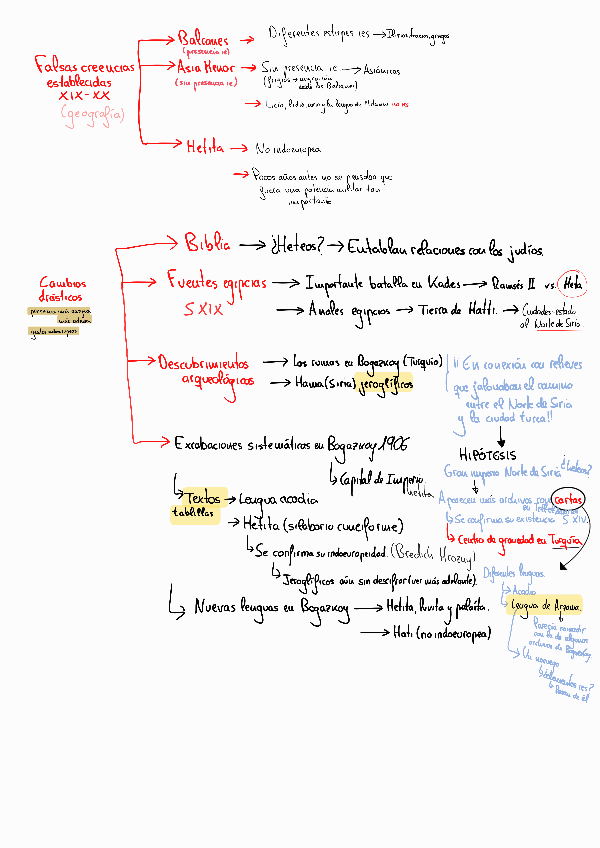 Falsas creencias
establecidas
XIX-XX
(geografía)
Balcanes → Diferentes estirpes ies → Ilirios, tracios, griegos
(presencia ie)
Asia Menor → Sin presencia ie → Asiánicos
(sin presencia ie)
(frigios → migración
desde los Balcanes)
→ Licio, lidio, cario y la lengua de Mitanni no ies
Hetita → No indoeuropea
→ Pocos años antes no se pensaba que
fuera una potencia militar tan
importante
Cambios
drásticos
Biblia → ¿Heteos? → Entablan relaciones con los judíos.
Fuentes egipcias → Importante batalla en Kades → Ramsés II vs. Heta
S XIX → Anales egipcios → Tierra de Hatti. → Ciudades-estado
al Norte de Siria
Descubrimientos → Las ruinas en Bogazkoy (Turquía)
arqueológicos → Hama (Siria) jeroglíficos
¡¡En conexión con relieves
que jalonaban el camino
entre el Norte de Siria
y la ciudad turca!!
Excabaciones sistemáticas en Bogazkoy 1906
↳ Capital de Imperio
hetita
HIPÓTESIS
Gran imperio Norte de Siria ¿heteos?
↳ Aparecen más archivos con cartas
↳ Se confirma su existencia S XIV.
↳ Centro de gravedad en Turquía
↳ Textos → Lengua acadia
tablillas
→ Hetita (silabario cuneiforme)
↳ Se confirma su indoeuropeidad. (Bredich Hrozny)
↳ Jeroglíficos aún sin descifrar (ver más adelante).
↳ Nuevas lenguas en Bogazkoy → Hetita, luvita y palaita.
→ Hati (no indoeuropea)
Diferentes lenguas.
↳ Acadio
↳ Lengua de Arzawa.
Parecía coincidir
con la de algunos
archivos de Bogazkoy
↳ Un noruego